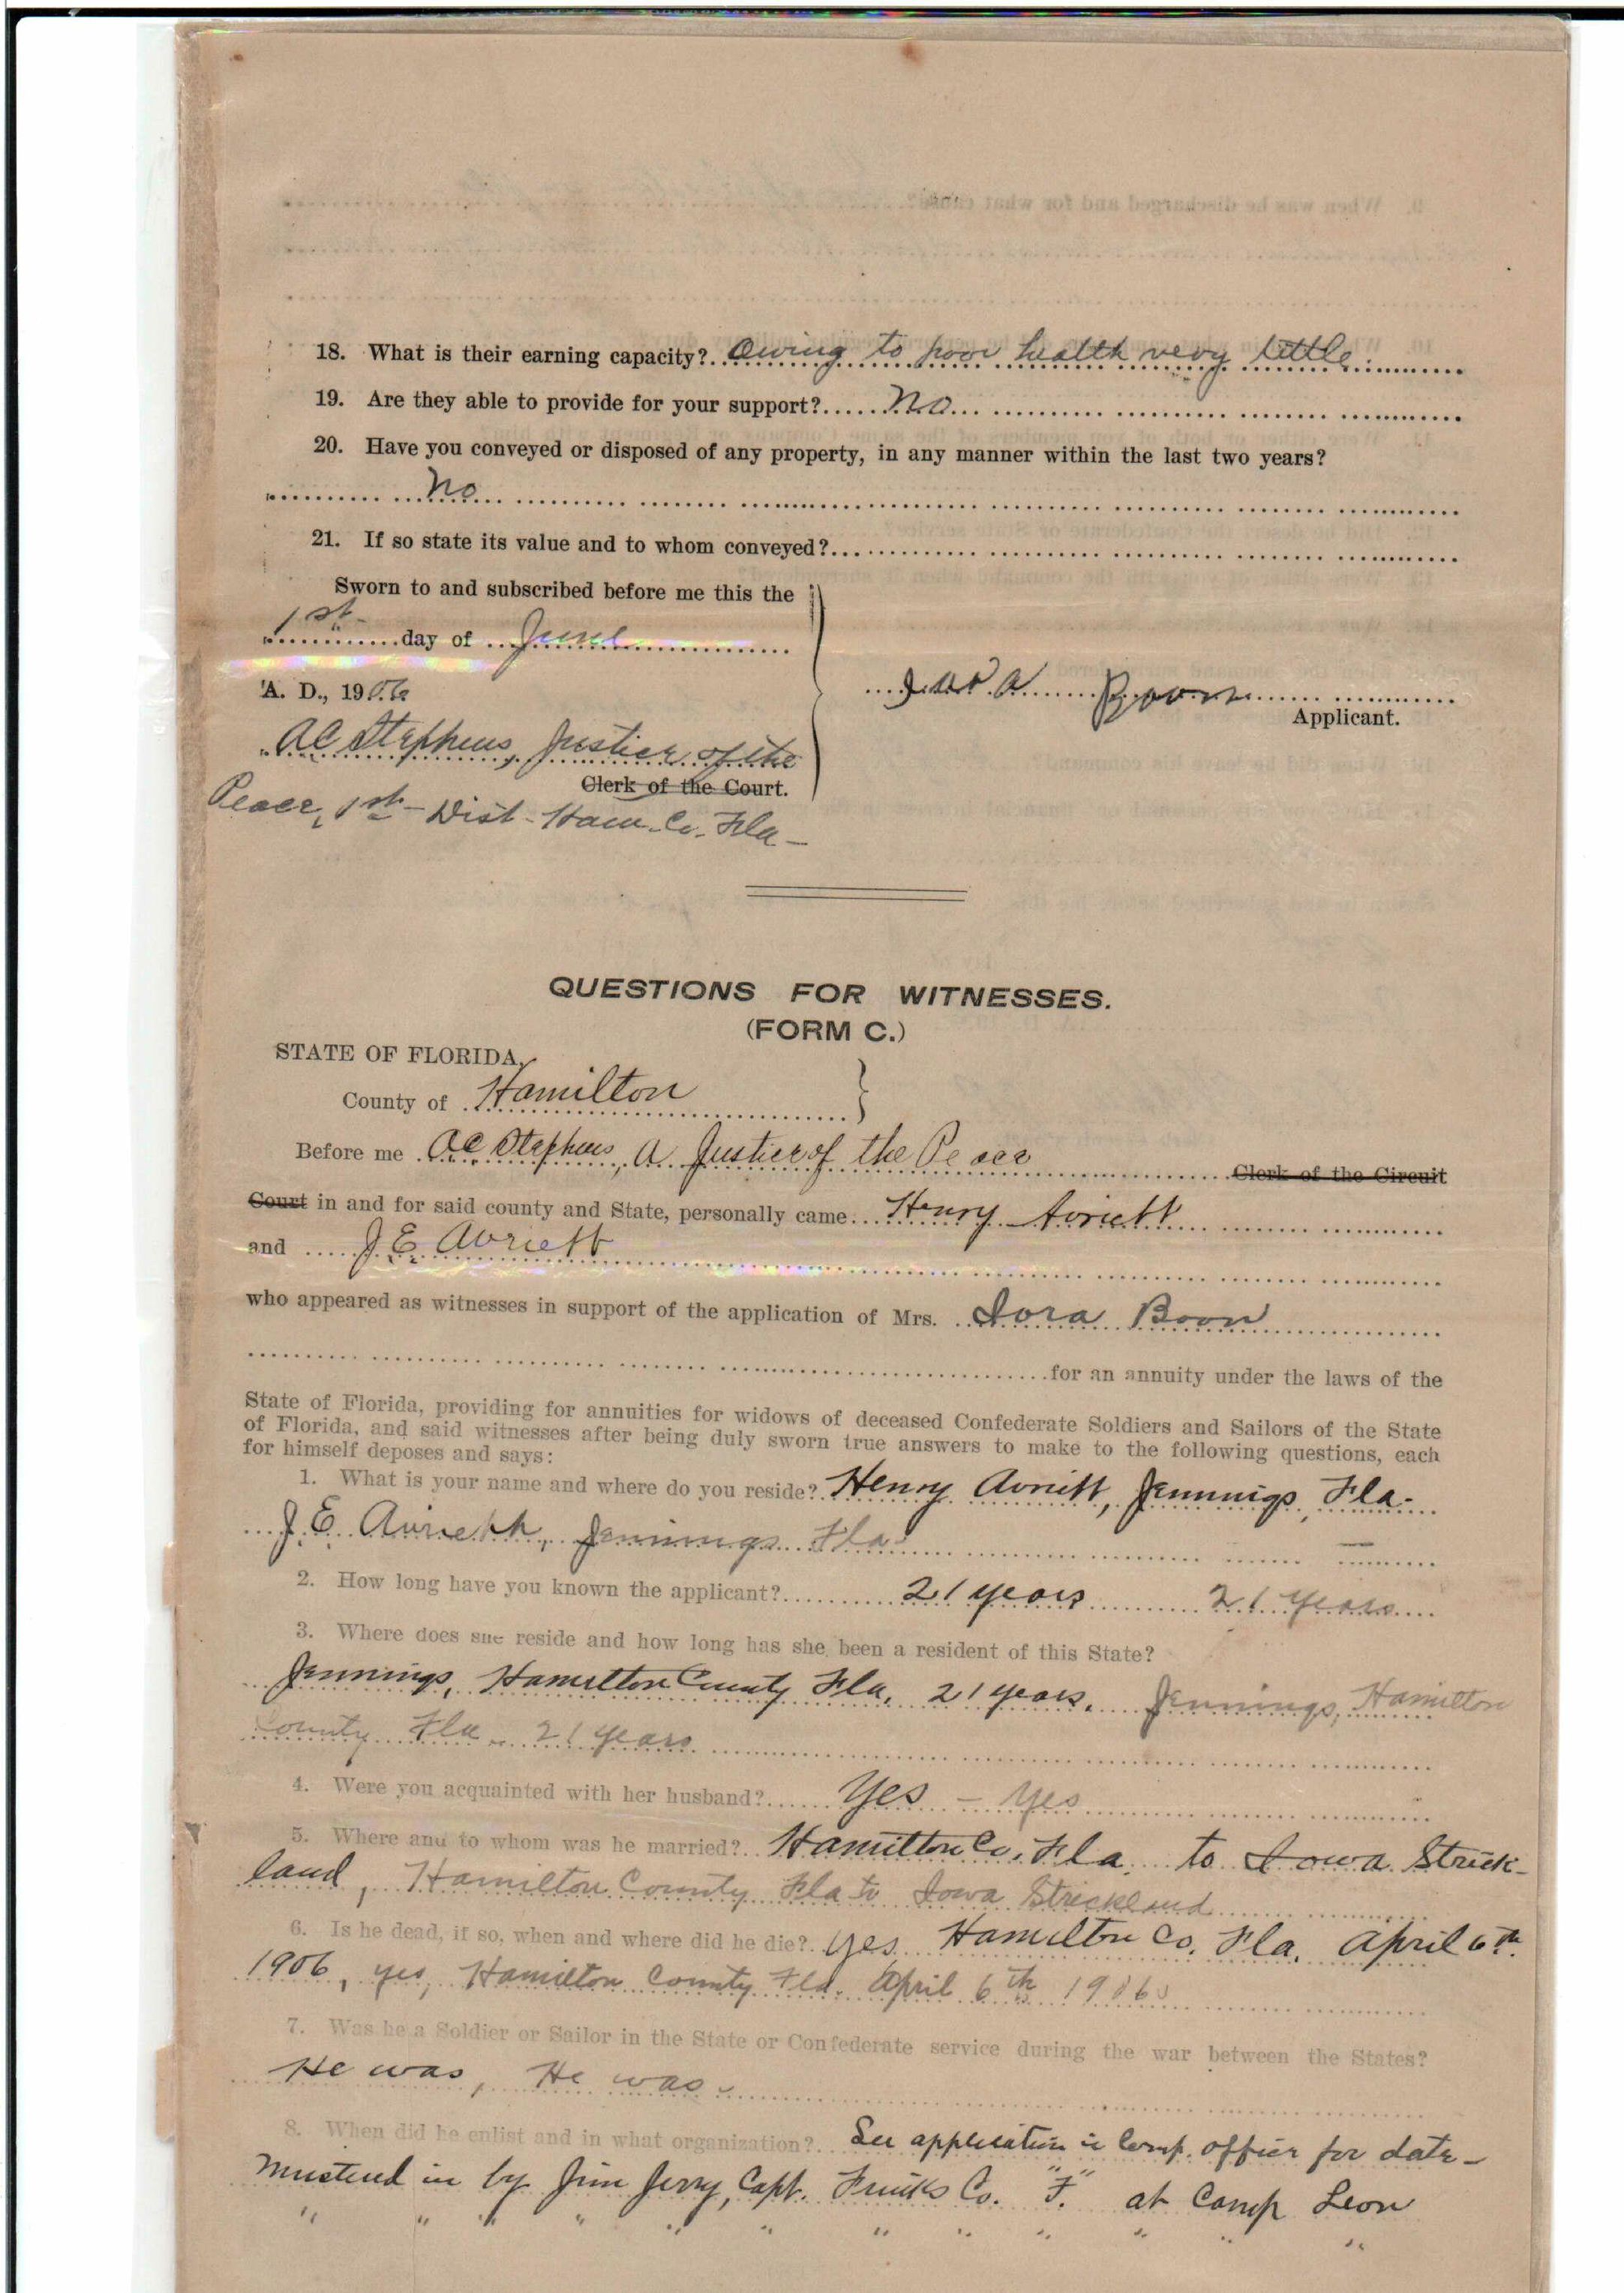 18. What is their earning capacity? Owing to poor health very little
19. Are they able to provide for your support? No
20. Have you conveyed or disposed of any property, in any manner within the last two years?
No
21. If so state its value and to whom conveyed?
Sworn to and subscribed before me this the
1st day of June
A. D., 1906
Boon
Applicant.
AC Stephens, Justice of the
Clerk of the Court.
Peace, 1st Dist. Ham. Co. Fla
QUESTIONS FOR WITNESSES.
(FORM C.)
STATE OF FLORIDA,
County of Hamilton
Before me AC Stephens, A Justice of the Peace Clerk of the Circuit
Court in and for said county and State, personally came Henry Avriett
and J E Avriett
who appeared as witnesses in support of the application of Mrs. Iora Boon
for an annuity under the laws of the
State of Florida, providing for annuities for widows of deceased Confederate Soldiers and Sailors of the State
of Florida, and said witnesses after being duly sworn true answers to make to the following questions, each
for himself deposes and says:
1. What is your name and where do you reside? Henry Avriett, Jennings, Fla.
J. E. Avriett, Jennings Fla.
2. How long have you known the applicant? 21 years 21 years
3. Where does she reside and how long has she been a resident of this State?
Jennings, Hamilton County Fla, 21 years. Jennings, Hamilton
County Fla 21 years
4. Were you acquainted with her husband? Yes - yes
5. Where and to whom was he married? Hamilton Co, Fla. to Iowa Strick-
land, Hamilton County Fla to Iowa Strickland
6. Is he dead, if so, when and where did he die? yes Hamilton Co, Fla, April 6th
1906, yes, Hamilton County Fla. April 6th 1906
7. Was he a Soldier or Sailor in the State or Confederate service during the war between the States?
He was, He was
8. When did he enlist and in what organization? See application in Comp. office for date-
Mustered in by Jim Jerry, Capt. Co. "F." at Camp Leon
" " " " " " " " " " " "